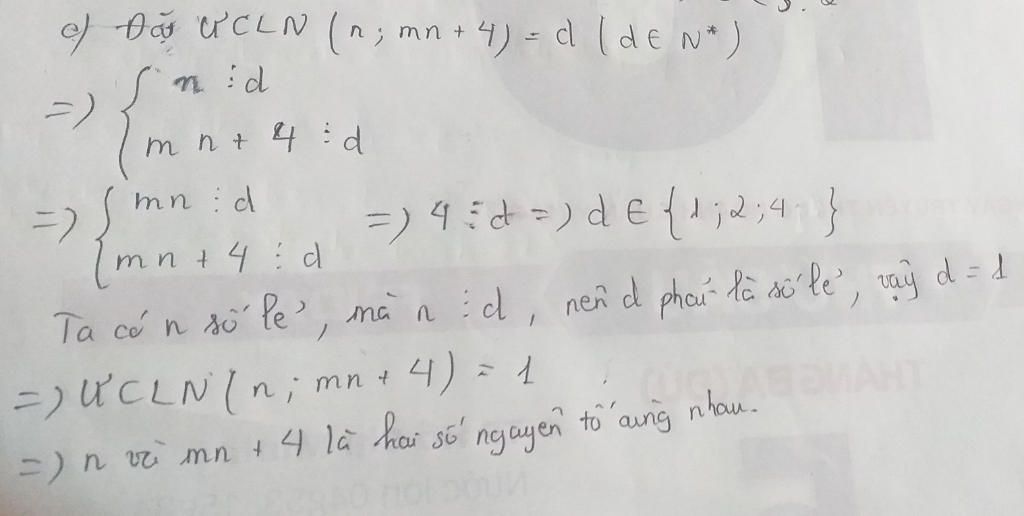 c) Đặt ƯCLN (n; mn + 4) = d (d ∈ N*)
=> { n ⋮ d
mn + 4 ⋮ d
=> { mn ⋮ d => 4 ⋮ d => d ∈ {1; 2; 4; }
mn + 4 ⋮ d
Ta có n số lẻ, mà n ⋮ d, nên d phải là số lẻ, vậy d = 1
=> ƯCLN (n; mn + 4) = 1
=> n và mn + 4 là hai số nguyên tố cùng nhau.